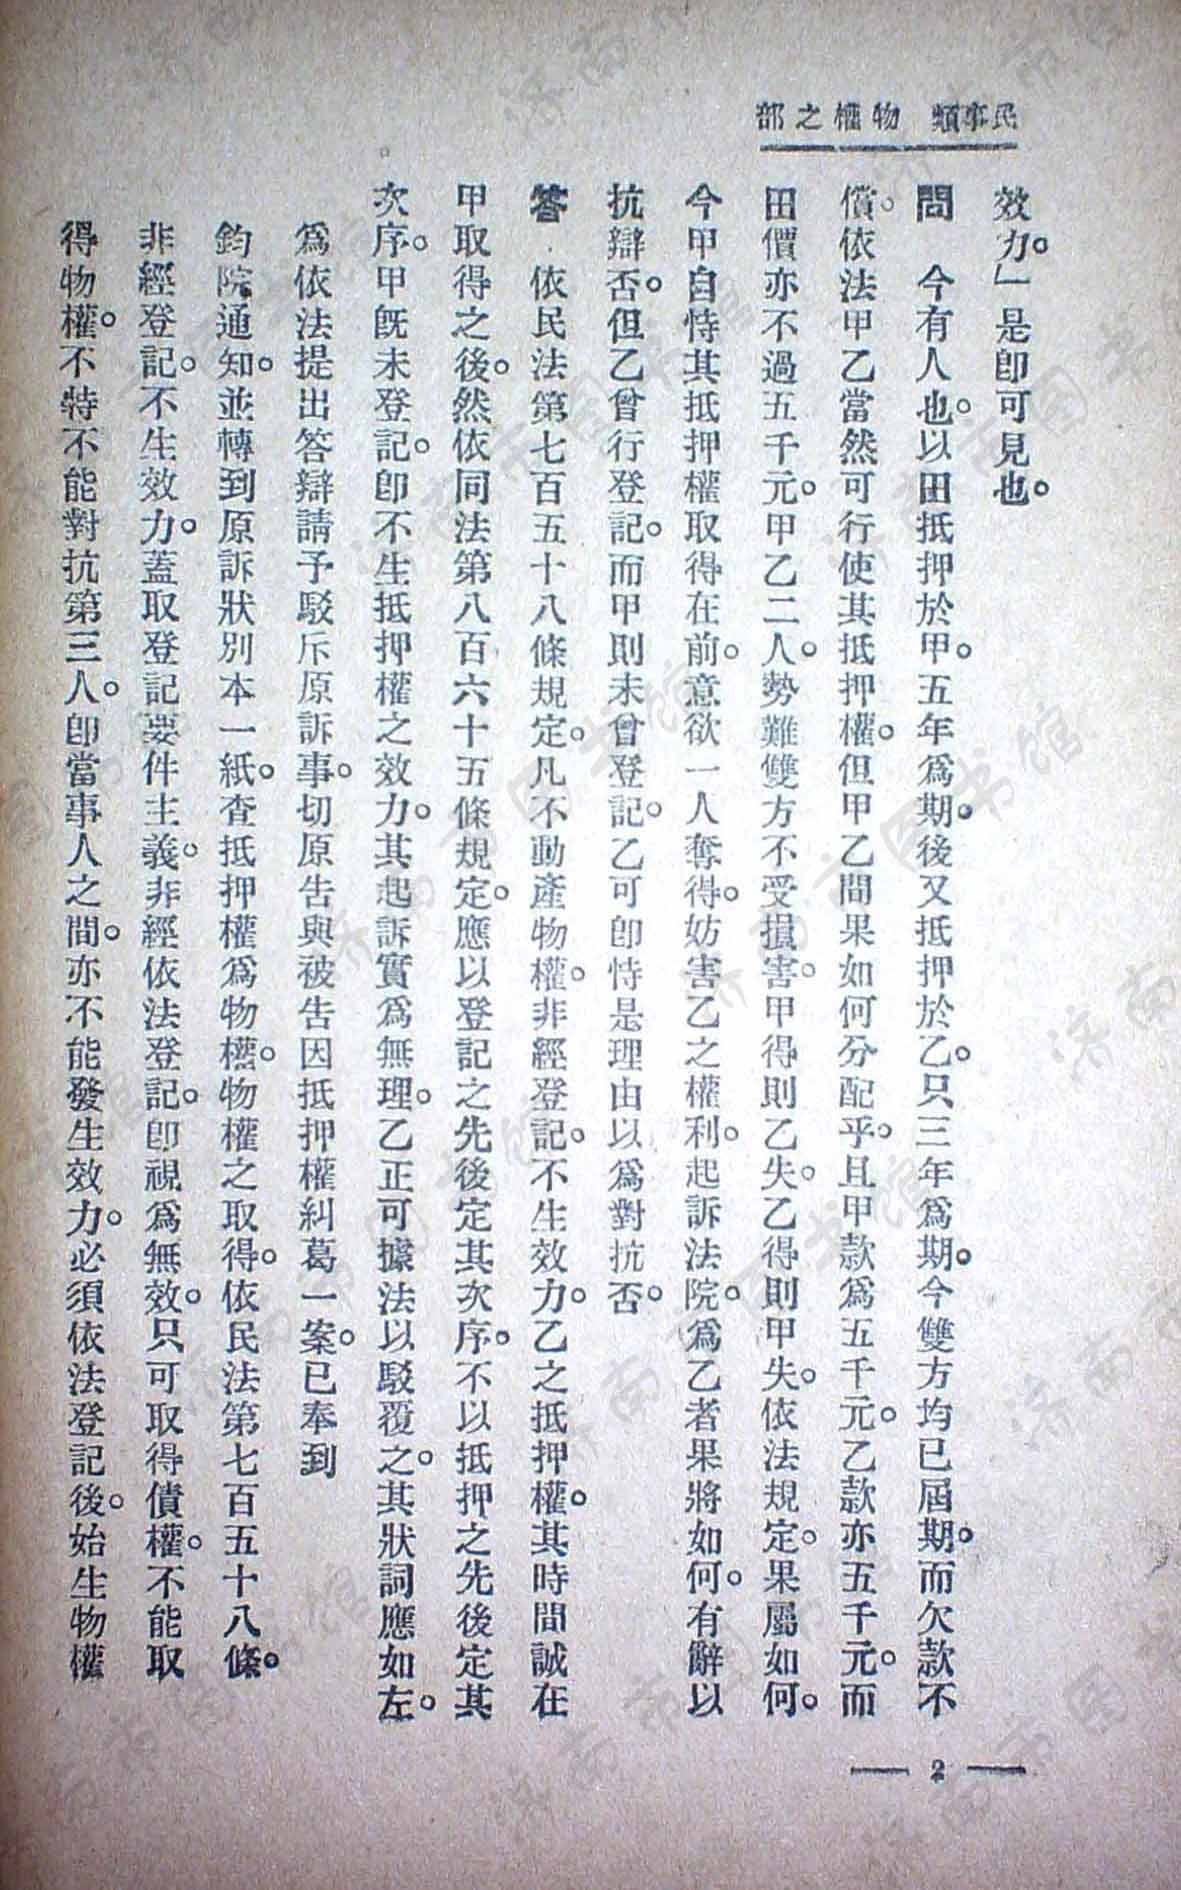 民事類　物權之部
效力。」是卽可見也。
問　今有人也。以田抵押於甲。五年爲期。後又抵押於乙。只三年爲期。今雙方均已屆期。而欠款不
償。依法甲乙當然可行使其抵押權。但甲乙間果如何分配乎。且甲款爲五千元。乙款亦五千元。而
田價亦不過五千元。甲乙二人。勢難雙方不受損害。甲得則乙失。乙得則甲失。依法規定。果屬如何。
今甲自恃其抵押權取得在前。意欲一人奪得。妨害乙之權利。起訴法院。爲乙者果將如何。有辭以
抗辯否。但乙曾行登記。而甲則未曾登記。乙可卽恃是理由以爲對抗否。
答　依民法第七百五十八條規定。凡不動產物權。非經登記。不生效力。乙之抵押權。其時間誠在
甲取得之後。然依同法第八百六十五條規定。應以登記之先後定其次序。不以抵押之先後定其
次序。甲旣未登記。卽不生抵押權之效力。其起訴實爲無理。乙正可據法以駁覆之。其狀詞應如左。
爲依法提出答辯請予駁斥原訴事。切原告與被告因抵押權糾葛一案。已奉到
鈞院通知。並轉到原訴狀別本一紙。查抵押權爲物權。物權之取得。依民法第七百五十八條。
非經登記。不生效力。蓋取登記要件主義。非經依法登記。卽視爲無效。只可取得債權。不能取
得物權。不特不能對抗第三人。卽當事人之間。亦不能發生效力。必須依法登記後。始生物權
— 2 —
济南市图书馆